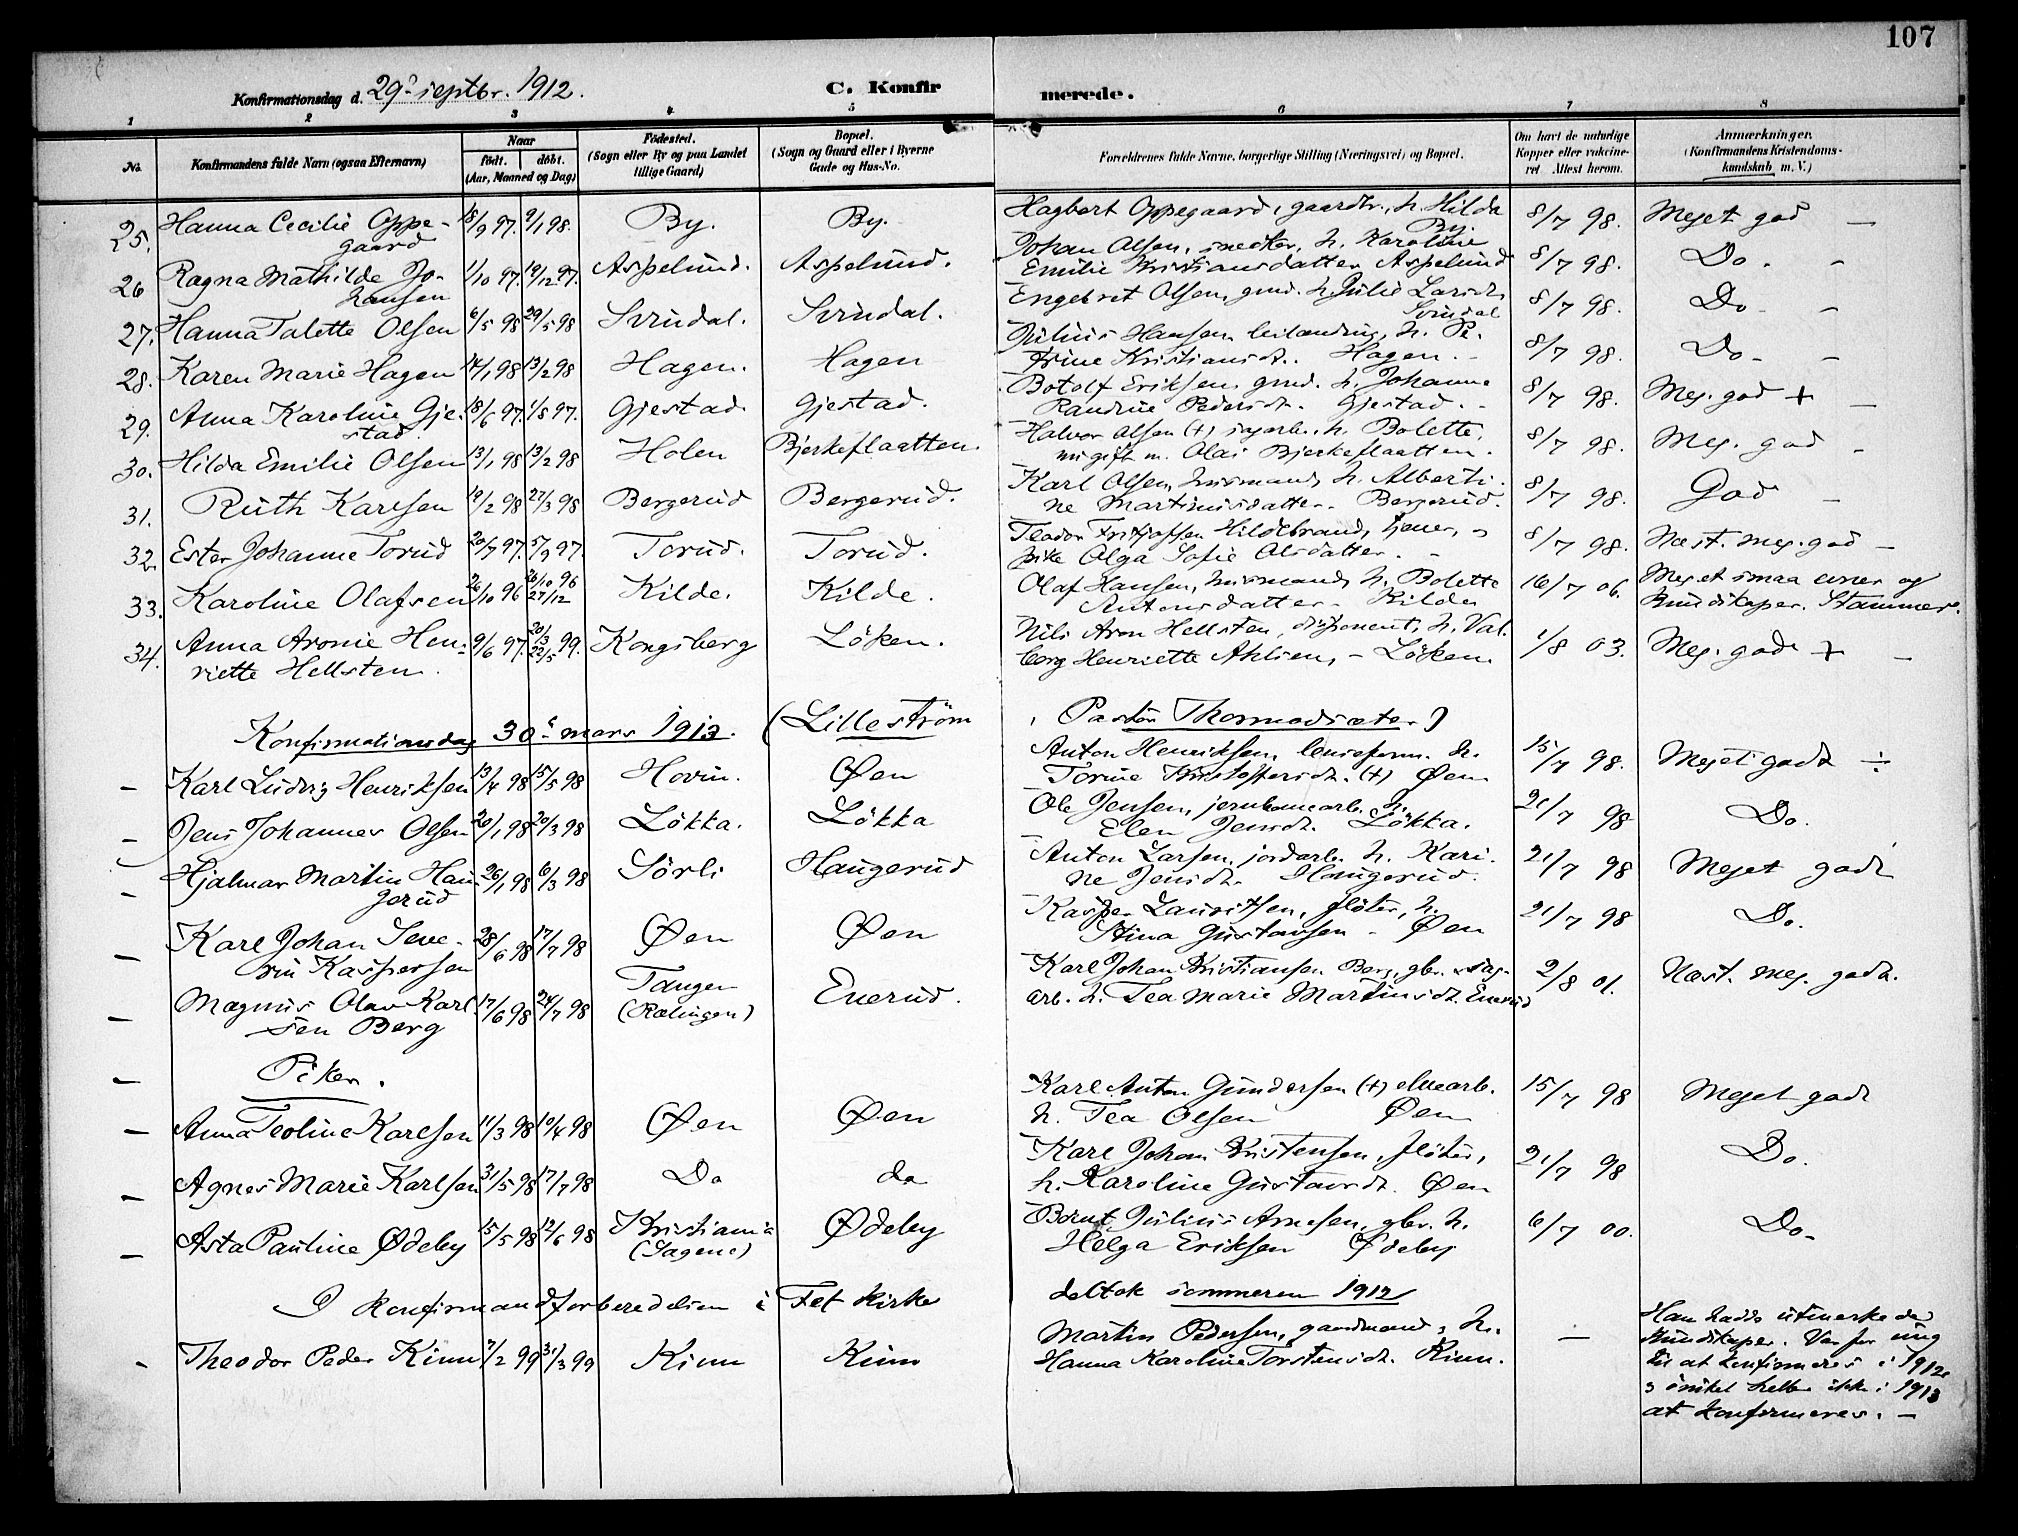 107
Konfirmationsdag d. 29. septbr. 1912. C. Konfirmerede.
1 2 3 4 5 6 7 8
No. Konfirmandens fulde Navn (ogsaa Efternavn) Naar født. døbt. (Aar, Maaned og Dag) Fødested. (Sogn eller By og paa Landet tillige Gaard) Bopæl. (Sogn og Gaard eller i Byerne Gade og Hus-No. Forældrenes fulde Navne, borgerlige Stilling (Næringsvei) og Bopæl. Om havt de naturlige Kopper eller vakcineret Attest herom. Anmærkninger. (Konfirmandens Kristendomskundskab m. V.)
25. Hanna Cecilie Oppegaard 18/9 97. 9/1 98. By. By. Hagbart Oppegaard, gaardbr., h. Hilda By. 8/7 98. Meget god —
26 Ragna Mathilde Johansen 1/10 97. 19/12 97. Aspelund. Aspelund. Johan Olsen, snedker, h. Karoline Emilie Kristiansdatter Aspelund 8/7 98. Do. -
27. Hanna Talette Olsen 6/5 98 29/5 98 Svindal. Svindal. Engebret Olsen, gmd. h. Julie Larsdt. Svindal 8/7 98. Do -
28. Karen Marie Hagen 14/1 98 13/2 98 Hagen. Hagen Julius Hansen leilænding, h. Petrine Kristiansdt. Hagen. - 8/7 98. Do- -
29. Anna Karoline Gjestad 18/6 97. 1/8 97. Gjestad. Gjestad. Botolf Eriksen, gmd. h. Johanne Randine Pedersdt. Gjestad. - 8/7 98. Meg. god + —
30. Hilda Emilie Olsen 13/1 98 13/2 98 Holen Bjerkeflaatten. Halvor Olsen (+) sagarb., h. Bolette, nu gift m. Olai Bjerkeflaatten. 8/7 98. Meg. god -
31. Ruth Karlsen 19/2 98 27/3 98 Bergerud Bergerud. Karl Olsen, husmand, h. Albertine Martinusdatter. Bergerud. 8/7 98. God -
32. Ester Johanne Torud 20/7 97. 5/9 97. Torud. Torud. Teodor Fritjofsen Hildebrand, tjener, pike Olga Sofie Olsdatter. - 8/7 98. Næst. meg. god —
33. Karoline Olafsen 26/10 96 26/10 96 27/12 Kilde. Kilde. Olaf Hansen, husmand, h. Bolette Antonsdatter. Kilde 16/7 06. Meget smaa evner og kundskaper. Stammer.
34. Anna Aronie Henriette Hellsten. 9/6 97. 20/3 22/5 99. Kongsberg Löken. Nils Aron Hellsten, disponent, h. Valborg Henriette Ahlsen, - Löken. 1/8 03. Meg. god + —
Konfirmationsdag 30. mars 1913. (Lilleström, Pastor Thormodsæter)
— Karl Ludvig Henriksen 13/4 98 15/5 98 Hovin. Øen Anton Henriksen, h. Torine Kristoffersdt. (+) Øen 15/7 98. Meget godt ÷
— Jens Johannes Olsen 20/1 98 20/3 98 Lökka. Lökka Ole Jensen, jernbanearb. h. Elen Jensdt. Lökka. 21/7 98 Do.
— Hjalmar Martin Haugerud 26/1 98 6/3 98 Sörli Haugerud Anton Larsen, jordarb. h. Karine Jensdt. Haugerud. 21/7 98 Meget godt
— Karl Johan Severin Kaspersen 28/6 98 17/7 98 Øen Øen Kasper Lauritsen, flöter, h. Stina Gustavsen - Øen 21/7 98 Do.
— Magnus Olav Karlsen Berg 17/6 98 24/7 98 Tangen (Rælingen) Enerud. Karl Johan Kristiansen Berg, gbr. & sagarb. h. Tea Marie Martinsdt. Enerud 2/8 01. Næst. meg. godt.
— Piker.
— Anna Teoline Karlsen 11/3 98 10/4 98 Øen Øen Karl Anton Gundersen (+) elvearb. h. Tea Olsen Øen 15/7 98 Meget godt
— Agnes Marie Karlsen 31/5 98 17/7 98 Do do Karl Johan Kristensen, flöter, h. Karoline Gustavsdt. Øen 21/7 98 Do.
— Asta Pauline Ødeby 15/5 98 12/6 98 Kristiania (Sagene) Ødeby Bernt Julius Arnesen, gbr. h. Helga Eriksen Ødeby 6/7 00. Do-
I konfirmandforberedelsen i Fet kirke deltok sommeren 1912
- Theodor Peder Kinn 7/2 99 31/3 99 Kinn Kinn Martin Pedersen, gaardmand, h. Hanna Karoline Torstensdt. Kinn. — Han hadde utmerkede kundskaper. Var for ung til at konfirmeres i 1912 & önsket heller ikke i 1913 at konfirmeres. —